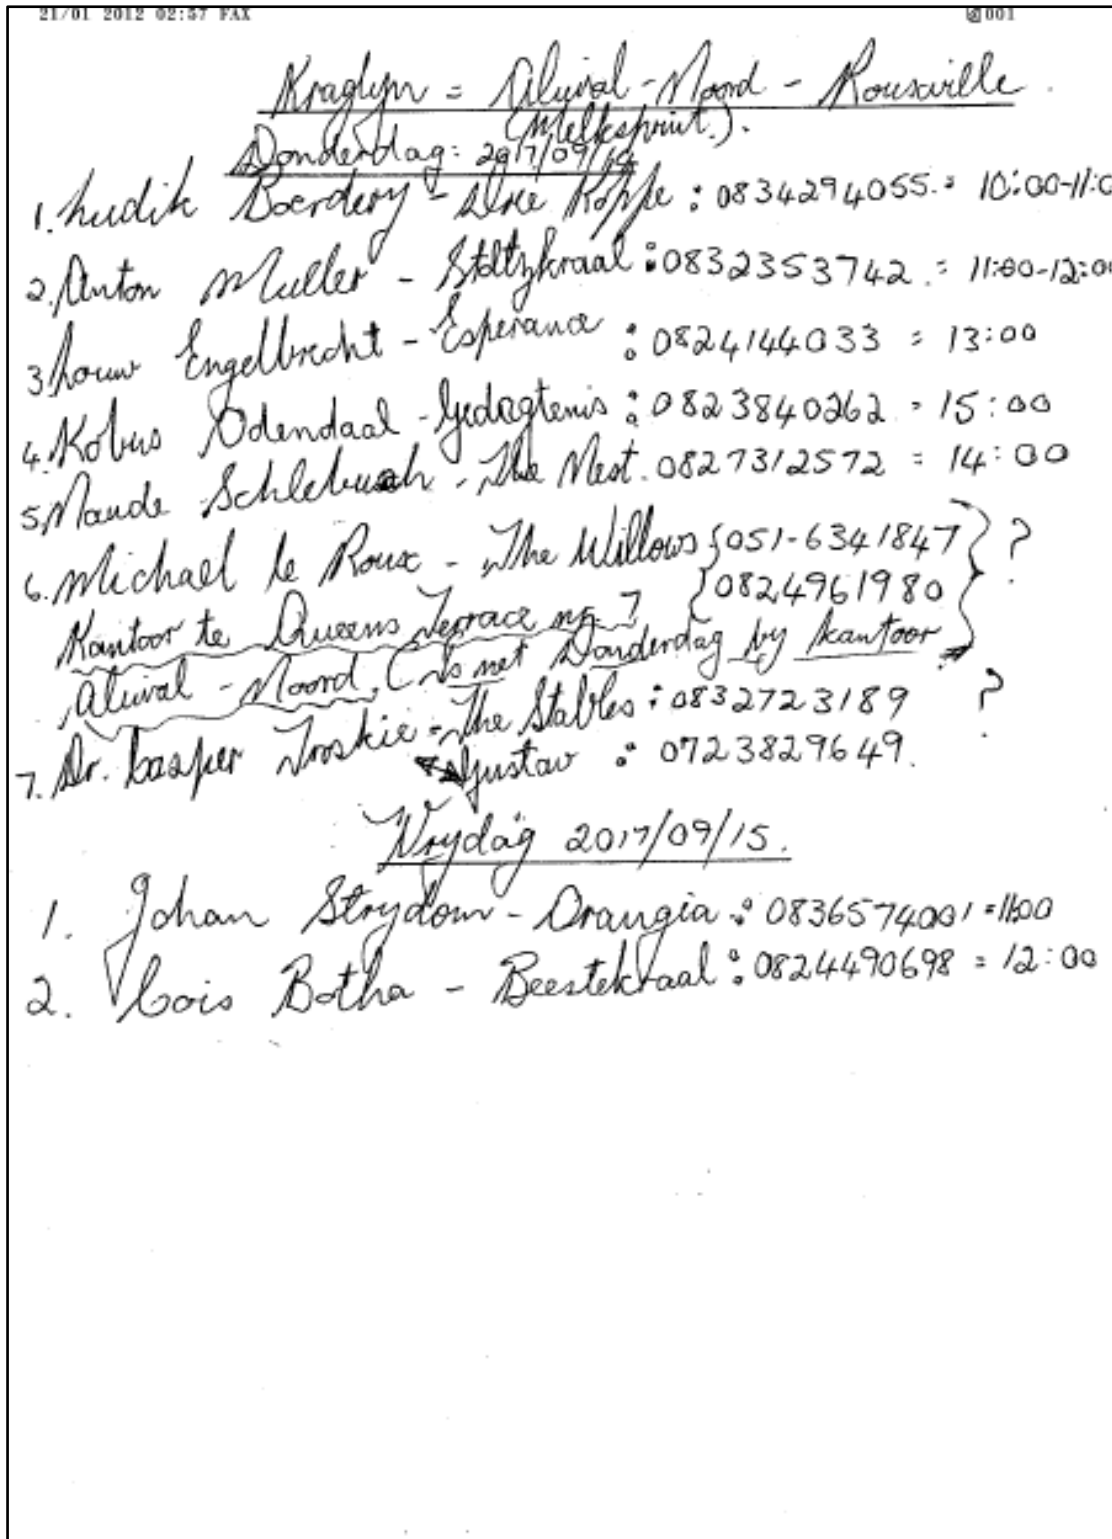 21/01 2012 02:57 FAX
001
Kraglyn = Aliwal-Noord - Rouxville.
(Melkspruit.).
Donderdag: 2017/09/14
1. Ludik Boerdery - Drie Koppe : 0834294055. = 10:00-11:0
2. Anton Muller - Stoltzkraal : 0832353742. = 11:00-12:00
3. Louw Engelbrecht - Esperance : 0824144033 = 13:00
4. Kobus Odendaal - Gedagtenis : 0823840262 = 15:00
5. Maude Schlebusch - The Nest. 0827312572 = 14:00
6. Michael le Roux - The Willows {051-6341847 } ?
{0824961980
Kantoor te Queens Terrace nr. 7
Aliwal-Noord, (Is net Donderdag by kantoor
7. Dr. Casper Troskie - The Stables : 0832723189 ?
Gustav : 0723829649.
Vrydag 2017/09/15.
1. Johan Strydom - Orangia : 0836574001 = 11:00
2. Cois Botha - Beestekraal : 0824490698 = 12:00